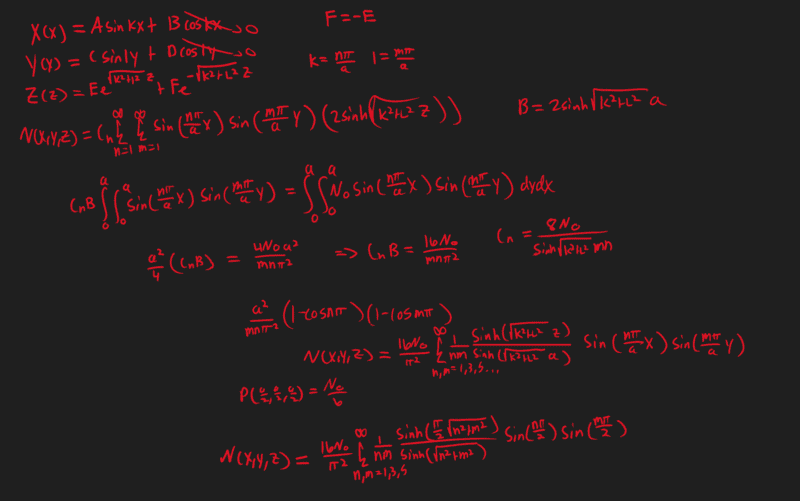 X(x) = A sin kx + B cos kx → 0
F = -E
Y(y) = C sin ly + D cos ly → 0
k = nπ/a l = mπ/a
Z(z) = Ee^(√(k²+l²) z) + Fe^(-√(k²+L²) z)
N(x,y,z) = C_n ∑_{n=1}^∞ ∑_{m=1}^∞ sin(nπ/a x) sin(mπ/a y) (2sinh(√(k²+L²) z))
B = 2sinh√(k²+L²) a
C_n B ∫_0^a ∫_0^a sin(nπ/a x) sin(mπ/a y) = ∫_0^a ∫_0^a N_0 sin(nπ/a x) sin(mπ/a y) dydx
a²/4 (C_n B) = 4N_0 a²/mnπ² => C_n B = 16N_0/mnπ² C_n = 8N_0/sinh√(k²+L²) mn
a²/mnπ² (1-cosnπ)(1-cosmπ)
N(x,y,z) = 16N_0/π² ∑_{n,m=1,3,5...}^∞ 1/nm sinh(√(k²+L²) z)/sinh(√(k²+L²) a) sin(nπ/a x) sin(mπ/a y)
P(a/2, a/2, a/2) = N_0/6
N(x,y,z) = 16N_0/π² ∑_{n,m=1,3,5}^∞ 1/nm sinh(π/2 √(n²+m²))/sinh(√(n²+m²)) sin(nπ/2) sin(mπ/2)